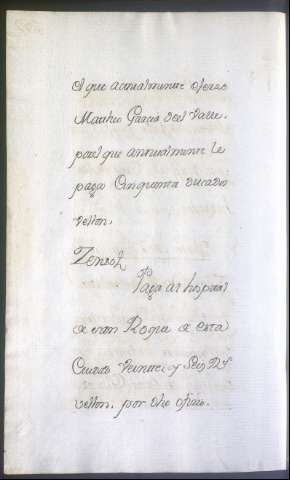 el que actualmente ejerze
Matheo Garcia del Valle,
por el que annualmente le
paga Cinquenta ducados
vellon.
Zenso
Paga al hospital
de san Roque de esta
Ciudad Veinte y Seis Rs
vellon, por dho oficio.